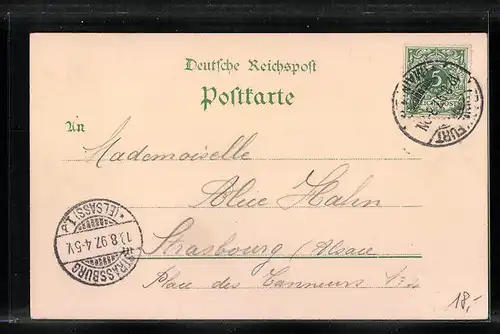 Deutsche Reichspost
Postkarte
An
Mademoiselle
Alice Hahn
Strasbourg (Alsace
Place des Tanneurs
STRASSBURG
(ELSASS) 1.
8.97. 4-5V.
FURT
5
18,-